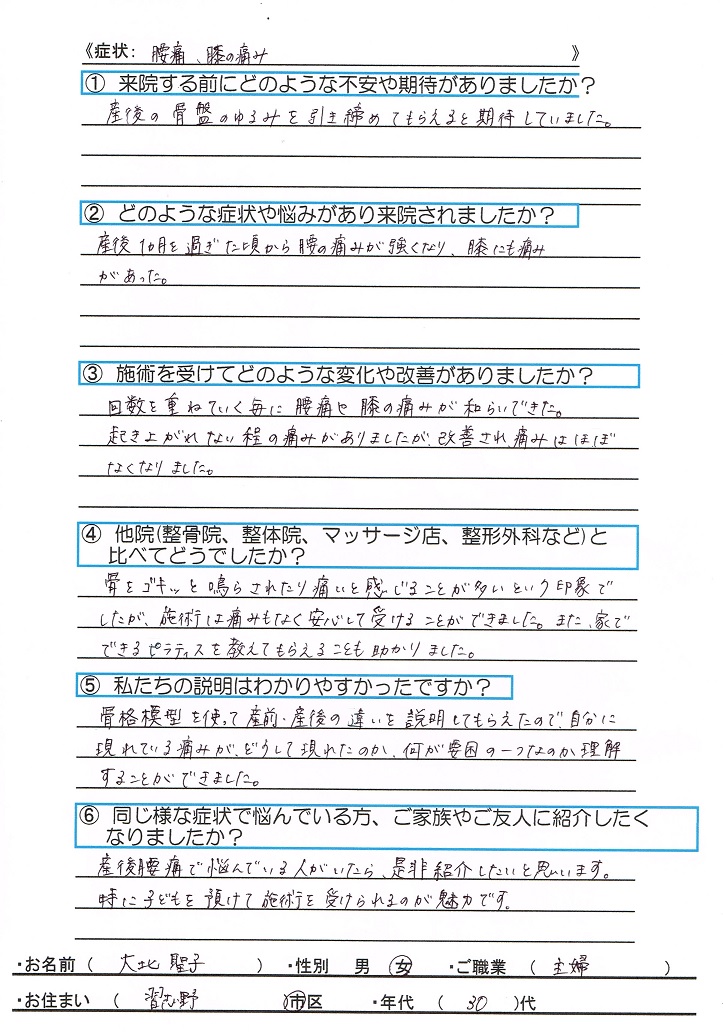 《症状: 腰痛、膝の痛み 》
① 来院する前にどのような不安や期待がありましたか?
産後の骨盤のゆるみを引き締めてもらえると期待していました。
② どのような症状や悩みがあり来院されましたか?
産後1ヶ月を過ぎた頃から腰の痛みが強くなり、膝にも痛み
があった。
③ 施術を受けてどのような変化や改善がありましたか?
回数を重ねていく毎に腰痛や膝の痛みが和らいできた。
起き上がれない程の痛みがありましたが、改善され、痛みはほぼ
なくなりました。
④ 他院(整骨院、整体院、マッサージ店、整形外科など)と
比べてどうでしたか?
骨をゴキッと鳴らされたり痛いと感じることが多いという印象で
したが、施術は痛みもなく安心して受けることができました。また、家で
できるピラティスを教えてもらえることも助かりました。
⑤ 私たちの説明はわかりやすかったですか?
骨格模型を使って産前・産後の違いを説明してもらえたので、自分に
現れている痛みが、どうして現れたのか、何が要因の一つなのか理解
することができました。
⑥ 同じ様な症状で悩んでいる方、ご家族やご友人に紹介したく
なりましたか?
産後腰痛で悩んでいる人がいたら、是非紹介したいと思います。
特に子どもを預けて施術を受けられるのが魅力です。
・お名前 ( 大北 聖子 ) ・性別 男 女 ・ご職業 ( 主婦 )
・お住まい ( 習志野 市区 ・年代 ( 30 )代